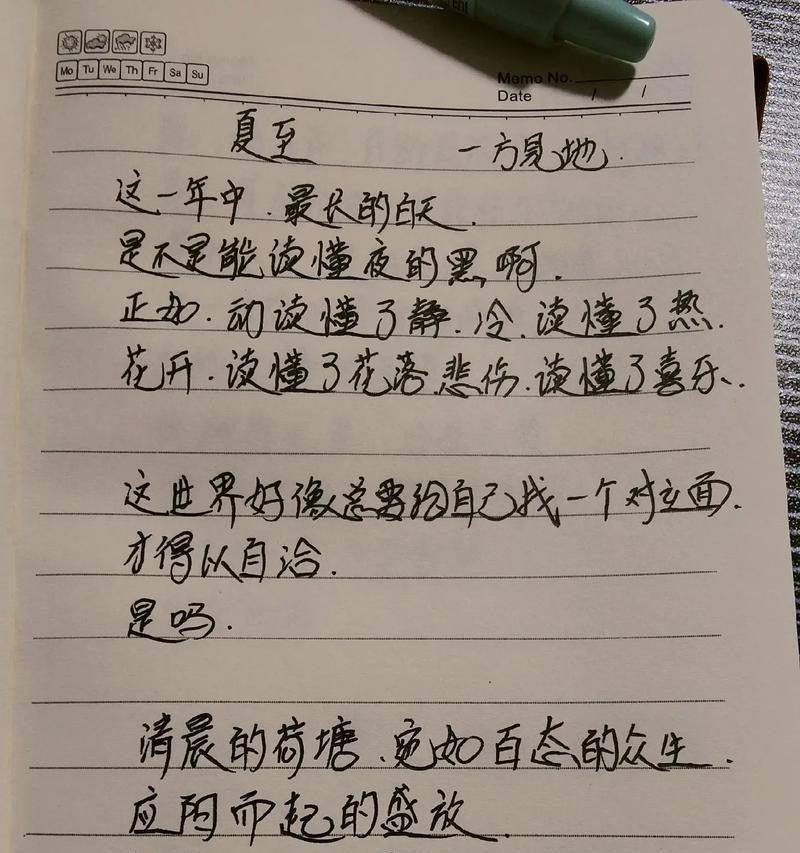 Mo Tu We Th Fr Sa Su
Memo No.
Date / /
夏至 一方见地.
这一年中.最长的白天.
是不是能读懂夜的黑啊.
正如.动读懂了静.冷.读懂了热.
花开.读懂了花落.悲伤.读懂了喜乐.
这世界好像总要给自己找一个对立面.
才得以自洽.
是吗.
清晨的荷塘.宛如百态的众生.
应阴而起的盛放.